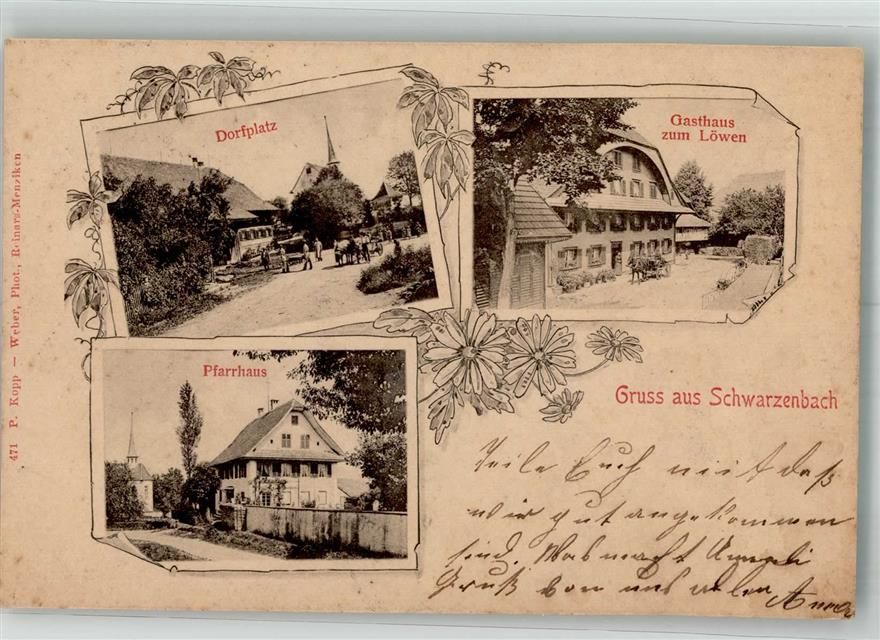 Dorfplatz
Gasthaus
zum Löwen
Pfarrhaus
Gruss aus Schwarzenbach
Teile Euch mit daß
wir gut angekommen
sind. Was macht Amali
Gruß von uns allen
Anna
471 P. Kopp — Weber, Phot., Reinars-Menziken